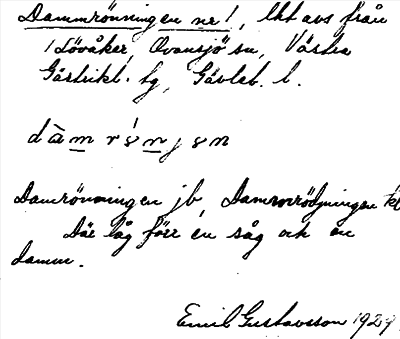 Dammrönningen nr 1, lht avs från
Lövåker, Ovansjö sn, Västra
Gästrikl. tg, Gävleb. l.
Damrönningen jb Damrorrödjningen
Där låg förr en såg och en
damm.
Emil Gustavsson 1929